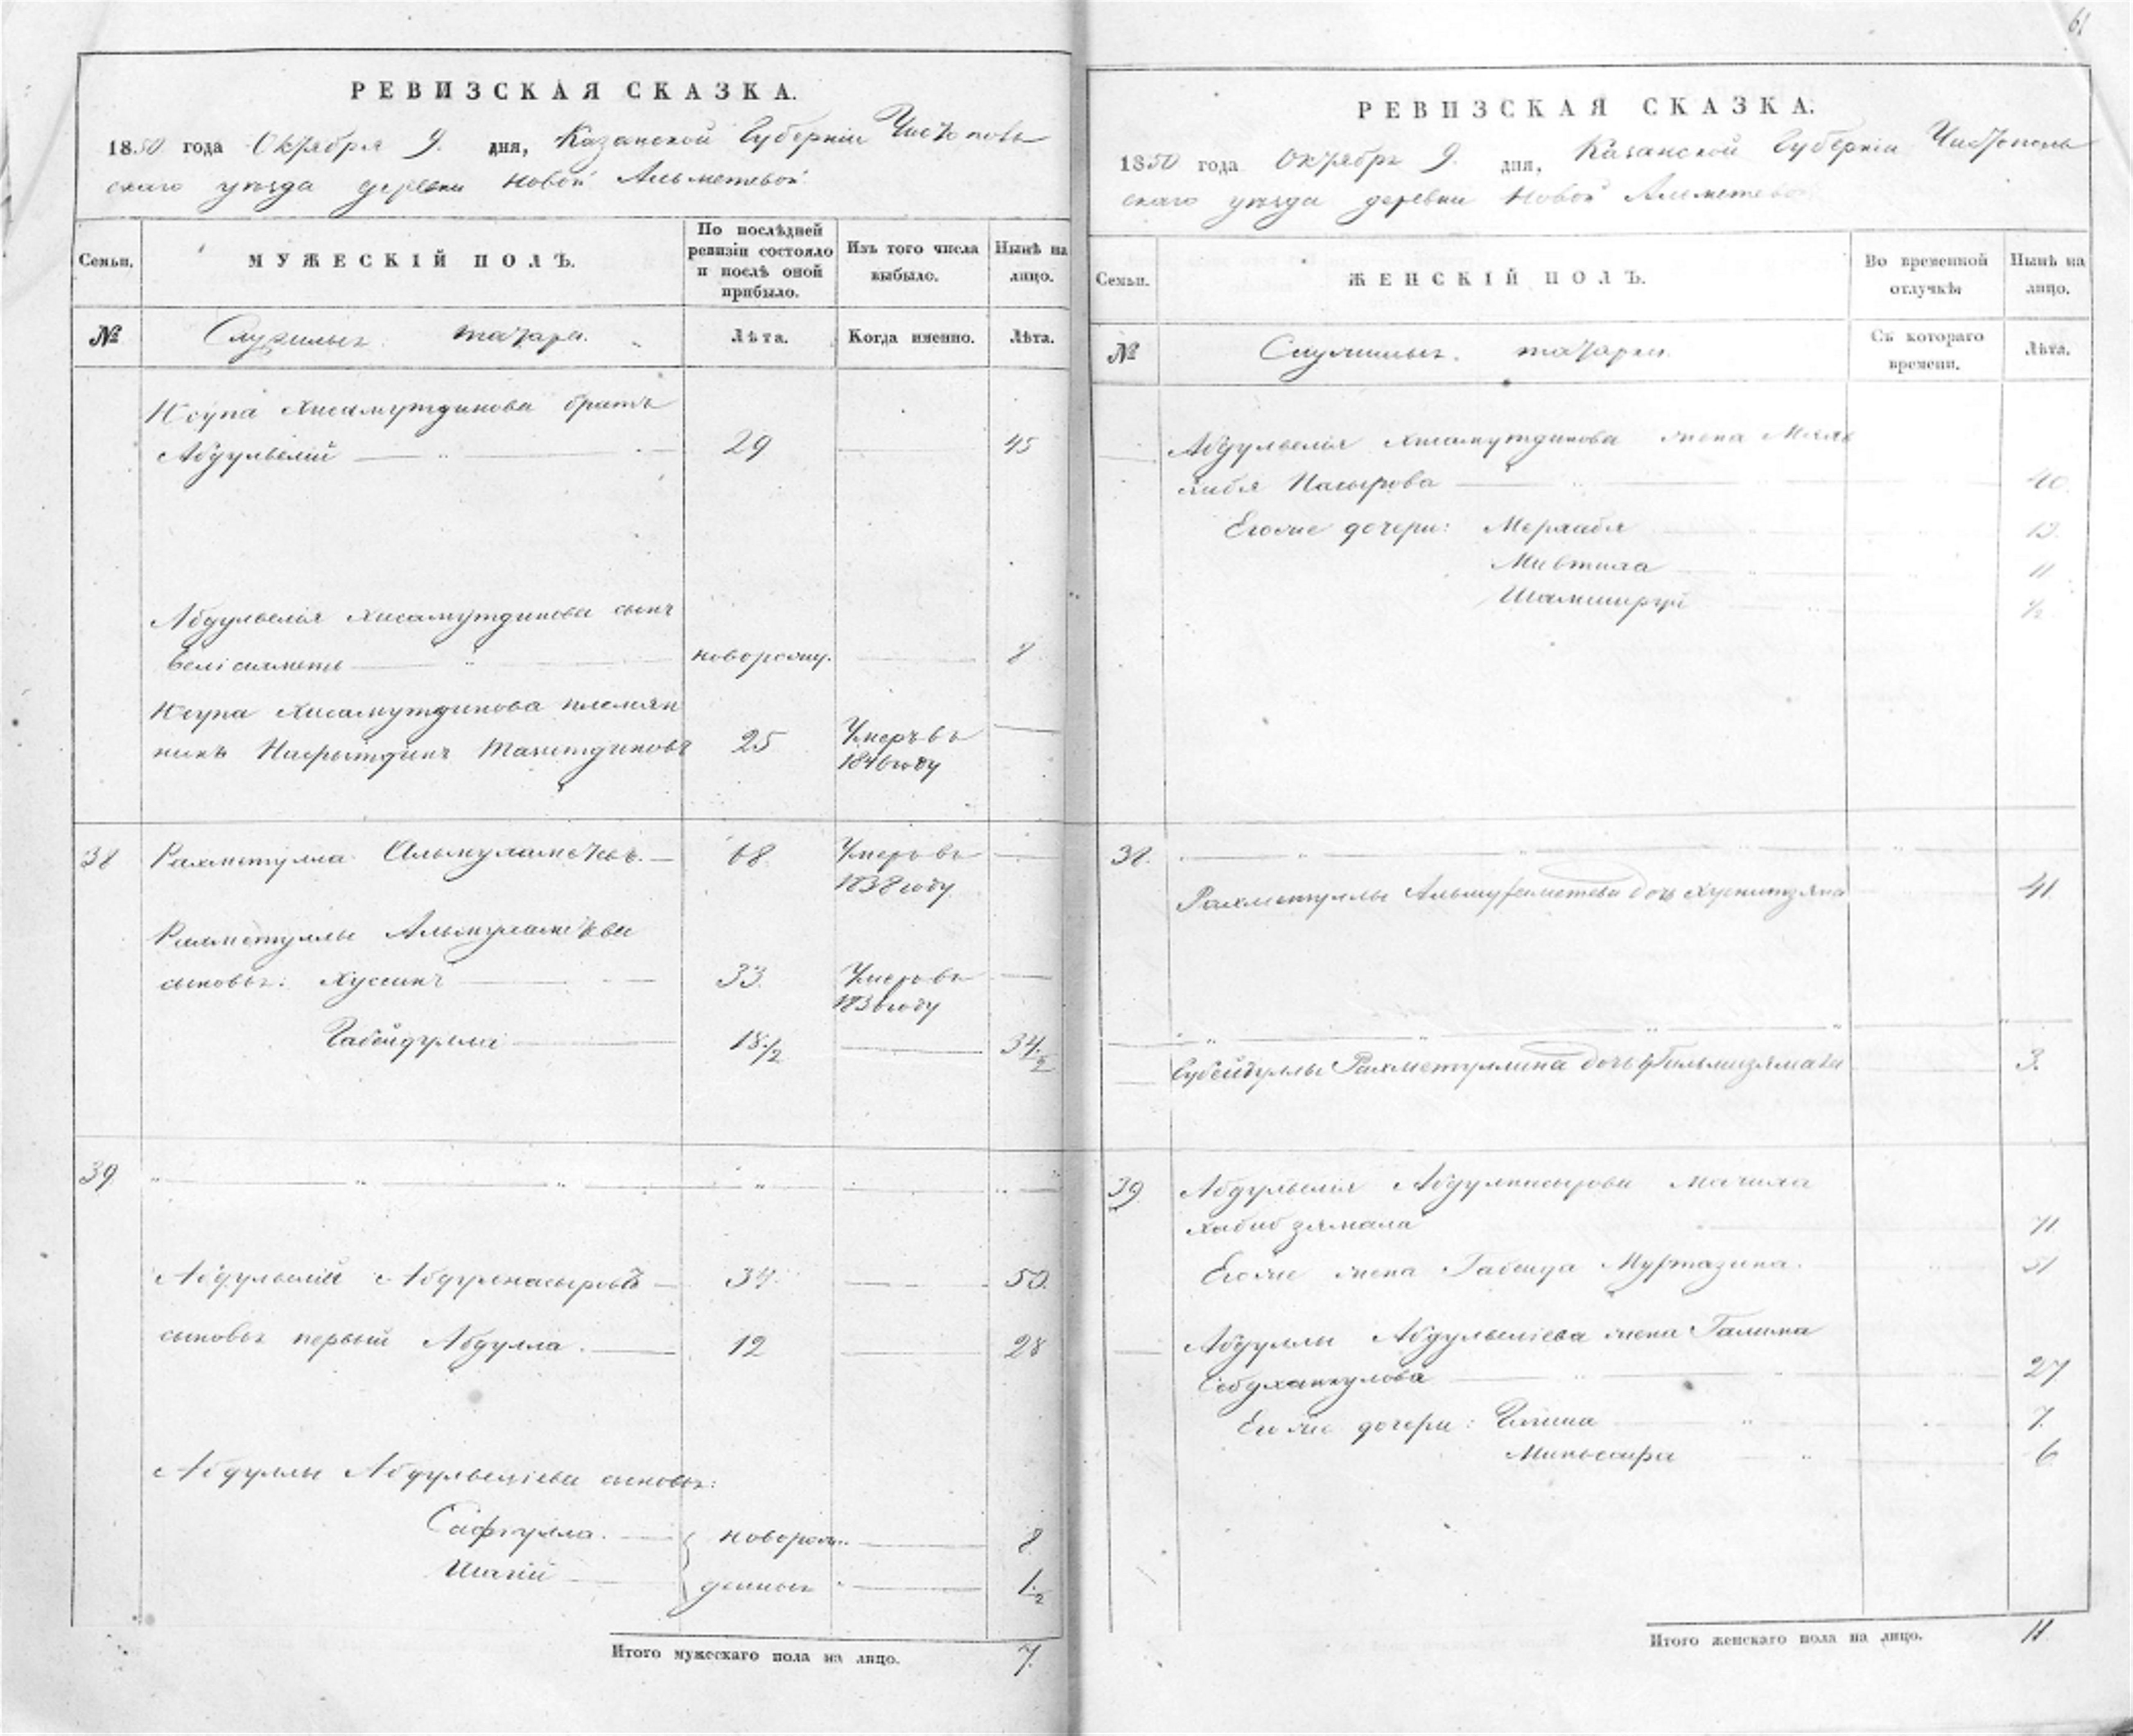 61
РЕВИЗСКАЯ СКАЗКА.
1850 года Октября 9. дня, Казанской Губерніи Чистополь
скаго уѣзда деревни Новой Альметевой
Семьи.
МУЖЕСКІЙ ПОЛЪ.
По послѣдней ревизіи состояло и послѣ оной прибыло.
Изъ того числа выбыло.
Нынѣ на лицо.
№
Служилыхъ татаръ.
Лѣта.
Когда именно.
Лѣта.
Юсупа Хисамутдинова братъ
Абдульвелій 29 45
Абдульвелія Хисамутдинова сынъ
Велісаметъ новорожд. 8
Юсупа Хисамутдинова племян
никъ Насрытдинъ 25 Умеръ въ
1846 году
38 Рахметулла 68 Умеръ въ
1838 году
Рахметуллы
сыновья: Хуссинъ 33. Умеръ въ
1836 году
Габейдулла 18½ 34½
39
Абдульвелій Абдулнасыровъ 34 50.
сыновья первый Абдулла. 12 28
Абдуллы Абдульвеліева сыновья:
Сафіулла. новорож- 8
денныхъ 1½
Итого мужескаго пола на лицо. 7.
РЕВИЗСКАЯ СКАЗКА.
1850 года Октября 9. дня, Казанской Губерніи Чистополь
скаго уѣзда деревни Новой Альметевой
Семьи.
ЖЕНСКІЙ ПОЛЪ.
Во временной отлучкѣ
Нынѣ на лицо.
№
Служилыхъ татаръ.
Съ котораго времени.
Лѣта.
Абдульвелія Хисамутдинова жена
Насырова 40.
Егоже дочери: 13.
11
½
38.
Рахметуллы дочь 41.
Рахметуллина дочь 3.
39 Абдульвелія Абдулнасырова мачиха
Хабибзямала 71.
Егоже жена Муртазина. 51
Абдуллы Абдульвеліева жена Галима
27
Егоже дочери: 7.
6
Итого женскаго пола на лицо. 11.